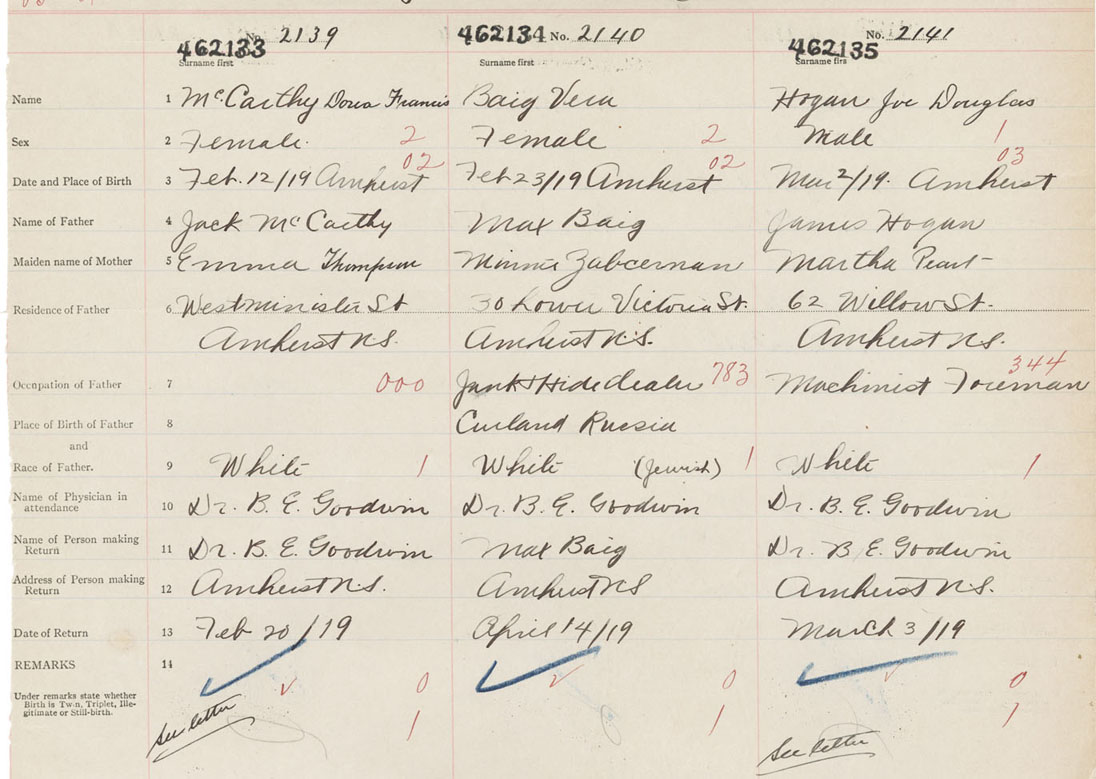 462133 No. 2139 462134 No. 2140 462135 No. 2141
Surname first Surname first Surname firs
Name 1 McCarthy Dora Francis Baig Vera Hogan Joe Douglas
Sex 2 Female. 2 Female 2 Male 1
02 02 03
Date and Place of Birth 3 Feb. 12/19 Amherst Feb 23/19 Amherst Mar 2/19. Amherst
Name of Father 4 Jack McCarthy Max Baig James Hogan
Maiden name of Mother 5 Emma Thompson Minnie Martha
Residence of Father 6 Westminister St 30 Lower Victoria St. 62 Willow St.
Amherst N.S. Amherst N.S. Amherst N.S.
Occupation of Father 7 000 Junk & Hide dealer 783 Machinist Foreman 344
Place of Birth of Father 8 Curland Russia
and
Race of Father. 9 White 1 White (Jewish) 1 White 1
Name of Physician in
attendance 10 Dr. B. E. Goodwin Dr. B. E. Goodwin Dr. B. E. Goodwin
Name of Person making
Return 11 Dr. B. E. Goodwin Max Baig Dr. B. E. Goodwin
Address of Person making
Return 12 Amherst N.S. Amherst N.S Amherst N.S.
Date of Return 13 Feb 20/19 April 14/19 March 3/19
REMARKS 14
Under remarks state whether
Birth is Twin, Triplet, Ille-
gitimate or Still-birth.
0 0 0
1 1 1
See letter See letter